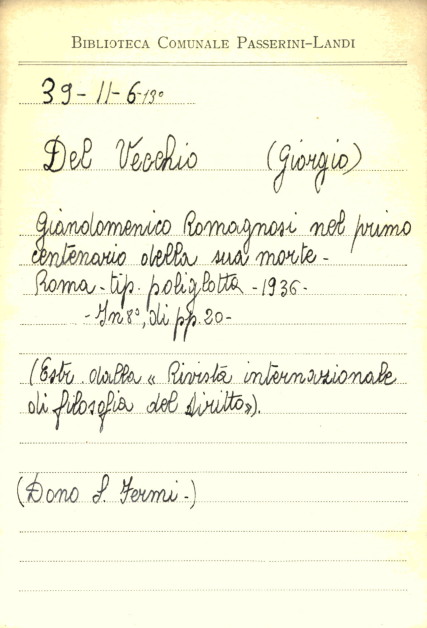 BIBLIOTECA COMUNALE PASSERINI-LANDI
39-11-6-13°
Del Vecchio (Giorgio)
Giandomenico Romagnosi nel primo
centenario della sua morte-
Roma-tip. poliglotta -1936-
-In 8°, di pp. 20-
(Estr. dalla « Rivista internazionale
di filosofia del diritto»).
(Dono S. Fermi-)